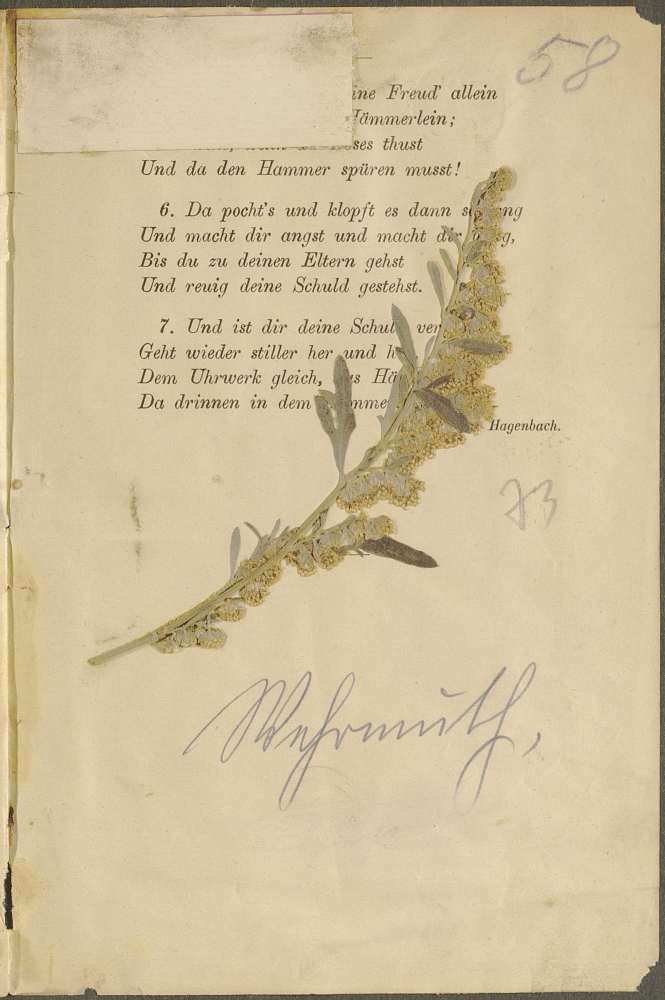 58
ine Freud' allein
Hämmerlein;
ses thust
Und da den Hammer spüren musst!
6. Da pocht's und klopft es dann s ng
Und macht dir angst und macht dir g,
Bis du zu deinen Eltern gehst
Und reuig deine Schuld gestehst.
7. Und ist dir deine Schul ver
Geht wieder stiller her und h
Dem Uhrwerk gleich, s Hä
Da drinnen in dem mme
Hagenbach.
73
Wehrmuth,